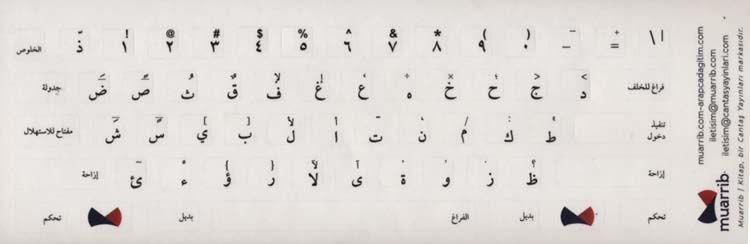 ! @ # $ % ^ & * ( ) _ + | \
الخلوص ذّ ١ ٢ ٣ ٤ ٥ ٦ ٧ ٨ ٩ ٠ - =
جدولة ضَ صً ثُ قٌ ف لإ غإ ع ` ه ÷ خ × ح ؛ ج < د >
فراغ للخلف
مفتاح للاستهلال شَ سً ي [ ب ] ل لأ ا أ ت ـ ن ، م / ك : ط "
تنفيذ
دخول
إزاحة ئ ~ ء ْ ؤ { ر } لا لآ ى آ ة ' و , ز . ظ ؟ إزاحة
تحكم بديل الفراغ بديل تحكم
muarrib.com-arapcadagitim.com
iletisim@muarrib.com
iletisim@cantasyayinlari.com
muarrib
Muarrib | Kitap, bir Cantaş Yayınları markasıdır.